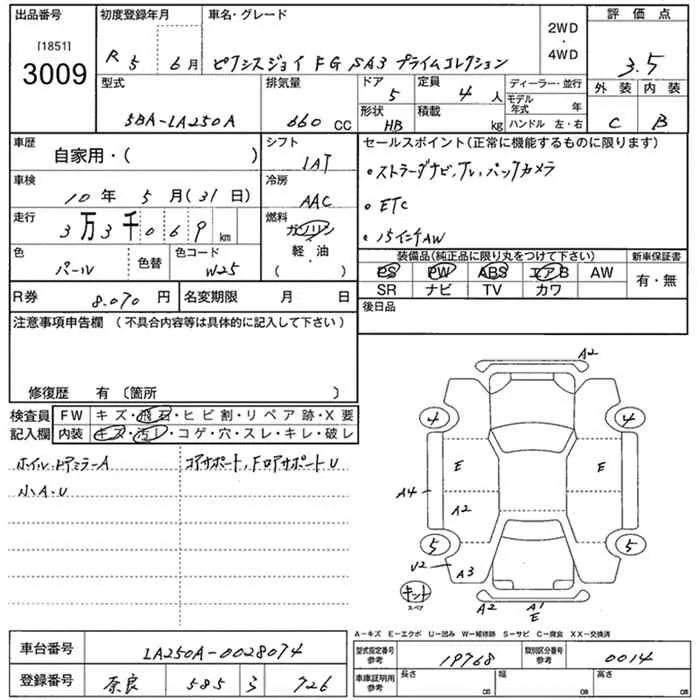 出品番号
[1851]
3009
初度登録年月
R 5 年 6 月
車名・グレード
ピクシスジョイ F G SA3 プライムコレクション
2WD
・
4WD
評価点
3.5
型式
5BA-LA250A
排気量
660 CC
ドア
5
定員
4 人
形状
HB
積載
kg
ディーラー・並行
モデル年式 年
ハンドル 左・右
外装
C
内装
B
車歴
自家用・( )
シフト
IAT
車検
10 年 5 月 (31 日)
冷房
AAC
走行
3万3千069 km
燃料
ガソリン
軽・油
( )
色
パール
色替
色コード
W25
セールスポイント(正常に機能するものに限ります)
・ストラーダナビ、TV、バックカメラ
・ETC
・15インチAW
装備品(純正品に限り丸をつけて下さい)
PS PW ABS エアB AW
SR ナビ TV カワ
新車保証書
有・無
R券
8.070 円
名変期限 月 日
後日品
注意事項申告欄 (不具合内容等は具体的に記入して下さい)
修復歴 有 〔箇所 〕
検査員記入欄
FW キズ・飛石・ヒビ割・リペア跡・X要
内装 キズ・汚レ・コゲ・穴・スレ・キレ・破レ
ホイル・ドアミラーA
小A・U
コアサポート、Fロアサポート U
A2
4
4
E
E
A4
A2
5
5
U2
A3
キット
スペア
A2
A1
E
A-キズ E-エクボ U-凹み W-補修跡 S-サビ C-腐食 XX-交換済
車台番号
LA250A-0028074
登録番号
奈良 585 う 726
型式指定番号
参考
19768
類別区分番号
参考
0014
車庫証明用
参考
長さ
cm
幅
cm
高さ
cm